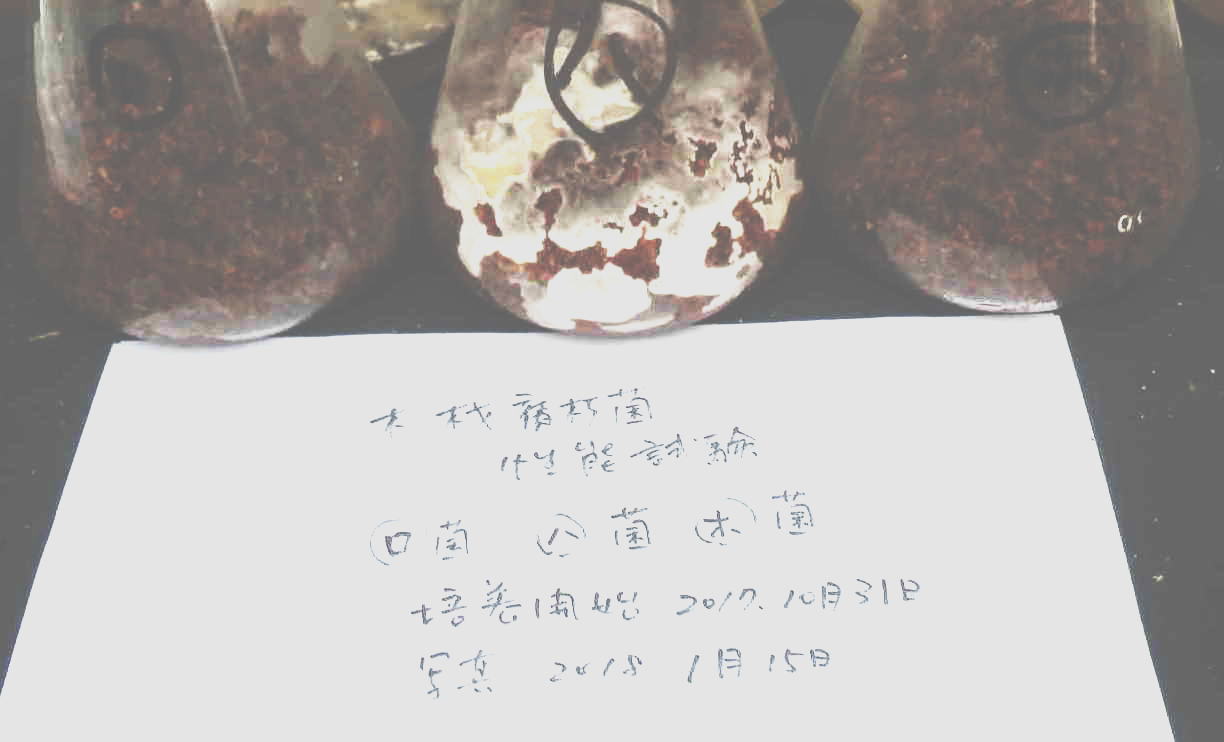 木材腐朽菌
性能試験
ロ菌 ハ菌 ホ菌
培養開始 2017.10月31日
写真 2018 1月15日